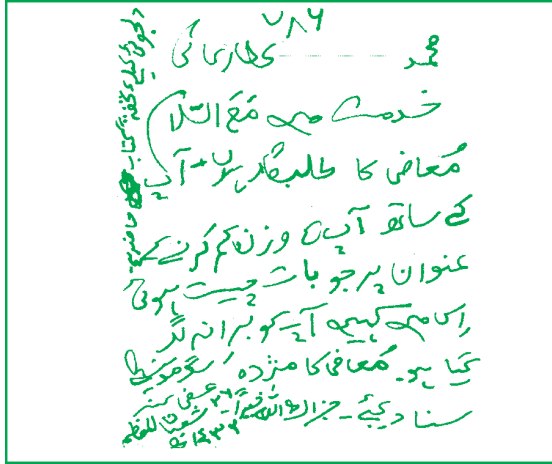 ۷۸۶
محمد ............ عطاری کی
خدمت میں مَعَ السّلام
مُعافی کا طلبگار ہوں۔ آپ
کے ساتھ آپ کے وزن کم کرنے کے
عنوان پر جو بات چیت ہوئی
اِس میں کہیں آپ کو بُرا نہ لگ
گیا ہو۔ مُعافی کا مژدہ
سنا دیجئے۔ جزاک اللہ خیراً
عُفِیَ عنہ
۲۶ شعبان المعظم
دلجوئی کیلئے تحفۃً کتاب حاضر ہے